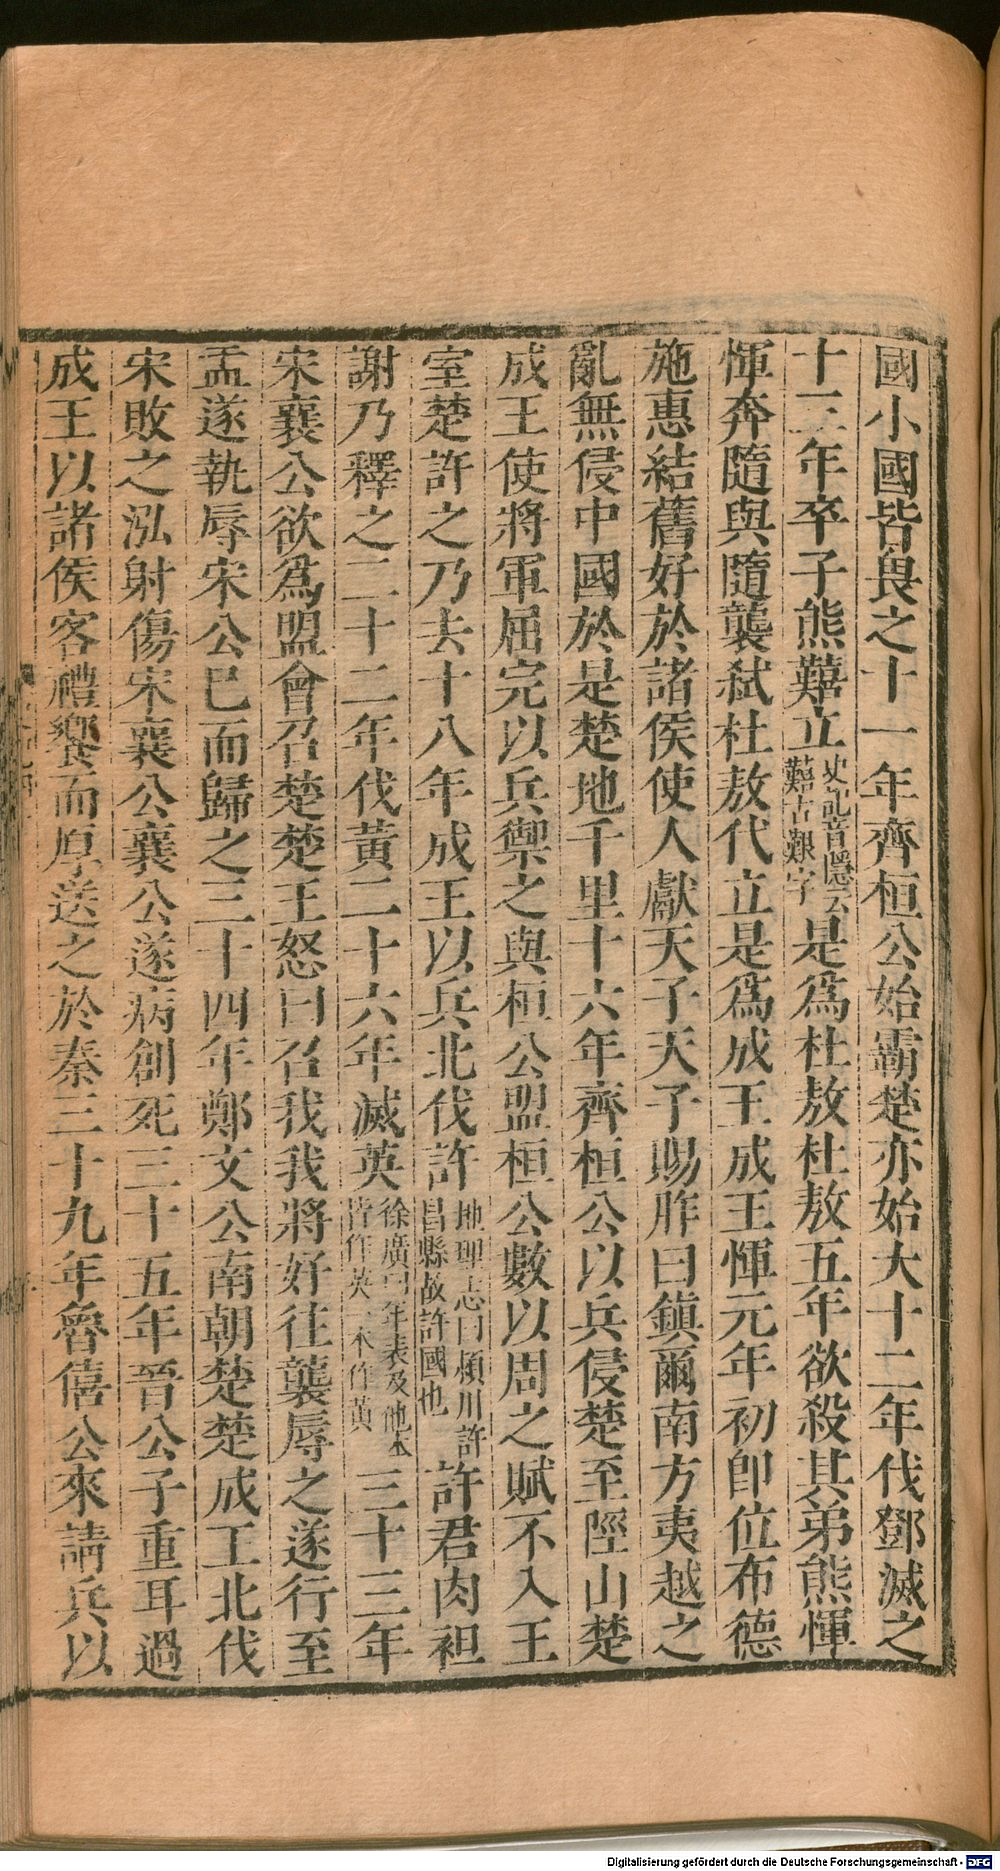 國小國皆畏之十一年齊桓公始霸楚亦始大十二年伐鄧滅之
十三年卒子熊囏立史記音隱云囏古艱字是爲杜敖杜敖五年欲殺其弟熊惲
惲奔隨與隨襲弑杜敖代立是爲成王成王惲元年初卽位布德
施惠結舊好於諸侯使人獻天子天子賜胙曰鎮爾南方夷越之
亂無侵中國於是楚地千里十六年齊桓公以兵侵楚至陘山楚
成王使將軍屈完以兵禦之與桓公盟桓公數以周之賦不入王
室楚許之乃去十八年成王以兵北伐許地理志曰潁川許昌縣故許國也許君肉袒
謝乃釋之二十二年伐黃二十六年滅英徐廣曰年表及他本皆作英一本作黃三十三年
宋襄公欲爲盟會召楚楚王怒曰召我我將好往襲辱之遂行至
盂遂執辱宋公已而歸之三十四年鄭文公南朝楚楚成王北伐
宋敗之泓射傷宋襄公襄公遂病創死三十五年晉公子重耳過
成王以諸侯客禮饗而厚送之於秦三十九年魯僖公來請兵以
Digitalisierung gefördert durch die Deutsche Forschungsgemeinschaft - DFG